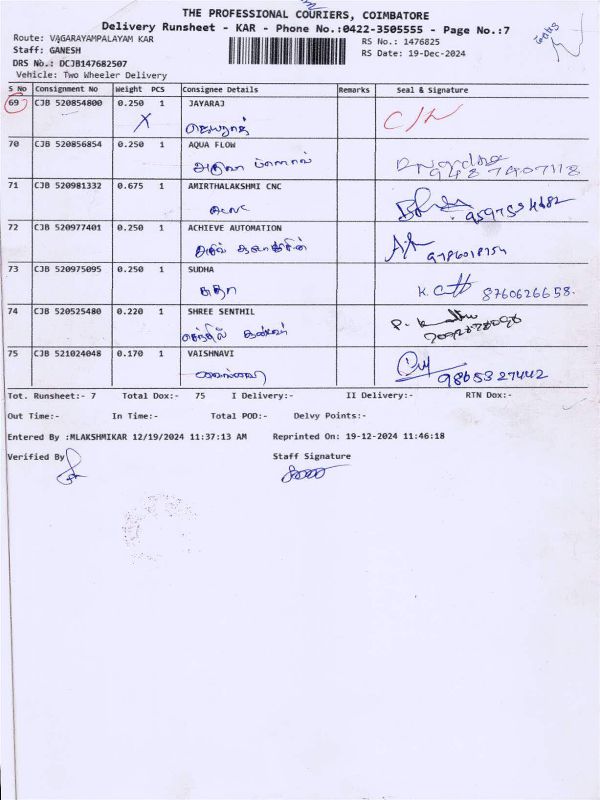 THE PROFESSIONAL COURIERS, COIMBATORE
Delivery Runsheet - KAR - Phone No.:0422-3505555 - Page No.:7
Route: VAGARAYAMPALAYAM KAR
RS No.: 1476825
Staff: GANESH
RS Date: 19-Dec-2024
DRS No.: DCJB147682507
Vehicle: Two Wheeler Delivery
S No Consignment No Weight PCS Consignee Details Remarks Seal & Signature
69 CJB 520854800 0.250 1 JAYARAJ
X ஜெயராஜ்
70 CJB 520856854 0.250 1 AQUA FLOW
9487407118
71 CJB 520981332 0.675 1 AMIRTHALAKSHMI CNC
72 CJB 520977401 0.250 1 ACHIEVE AUTOMATION
73 CJB 520975095 0.250 1 SUDHA
சுதா K. 8760626658.
74 CJB 520525480 0.220 1 SHREE SENTHIL
செந்தில்
75 CJB 521024048 0.170 1 VAISHNAVI
9865327442
Tot. Runsheet:- 7 Total Dox:- 75 I Delivery:- II Delivery:- RTN Dox:-
Out Time:- In Time:- Total POD:- Delvy Points:-
Entered By :MLAKSHMIKAR 12/19/2024 11:37:13 AM Reprinted On: 19-12-2024 11:46:18
Verified By
Staff Signature